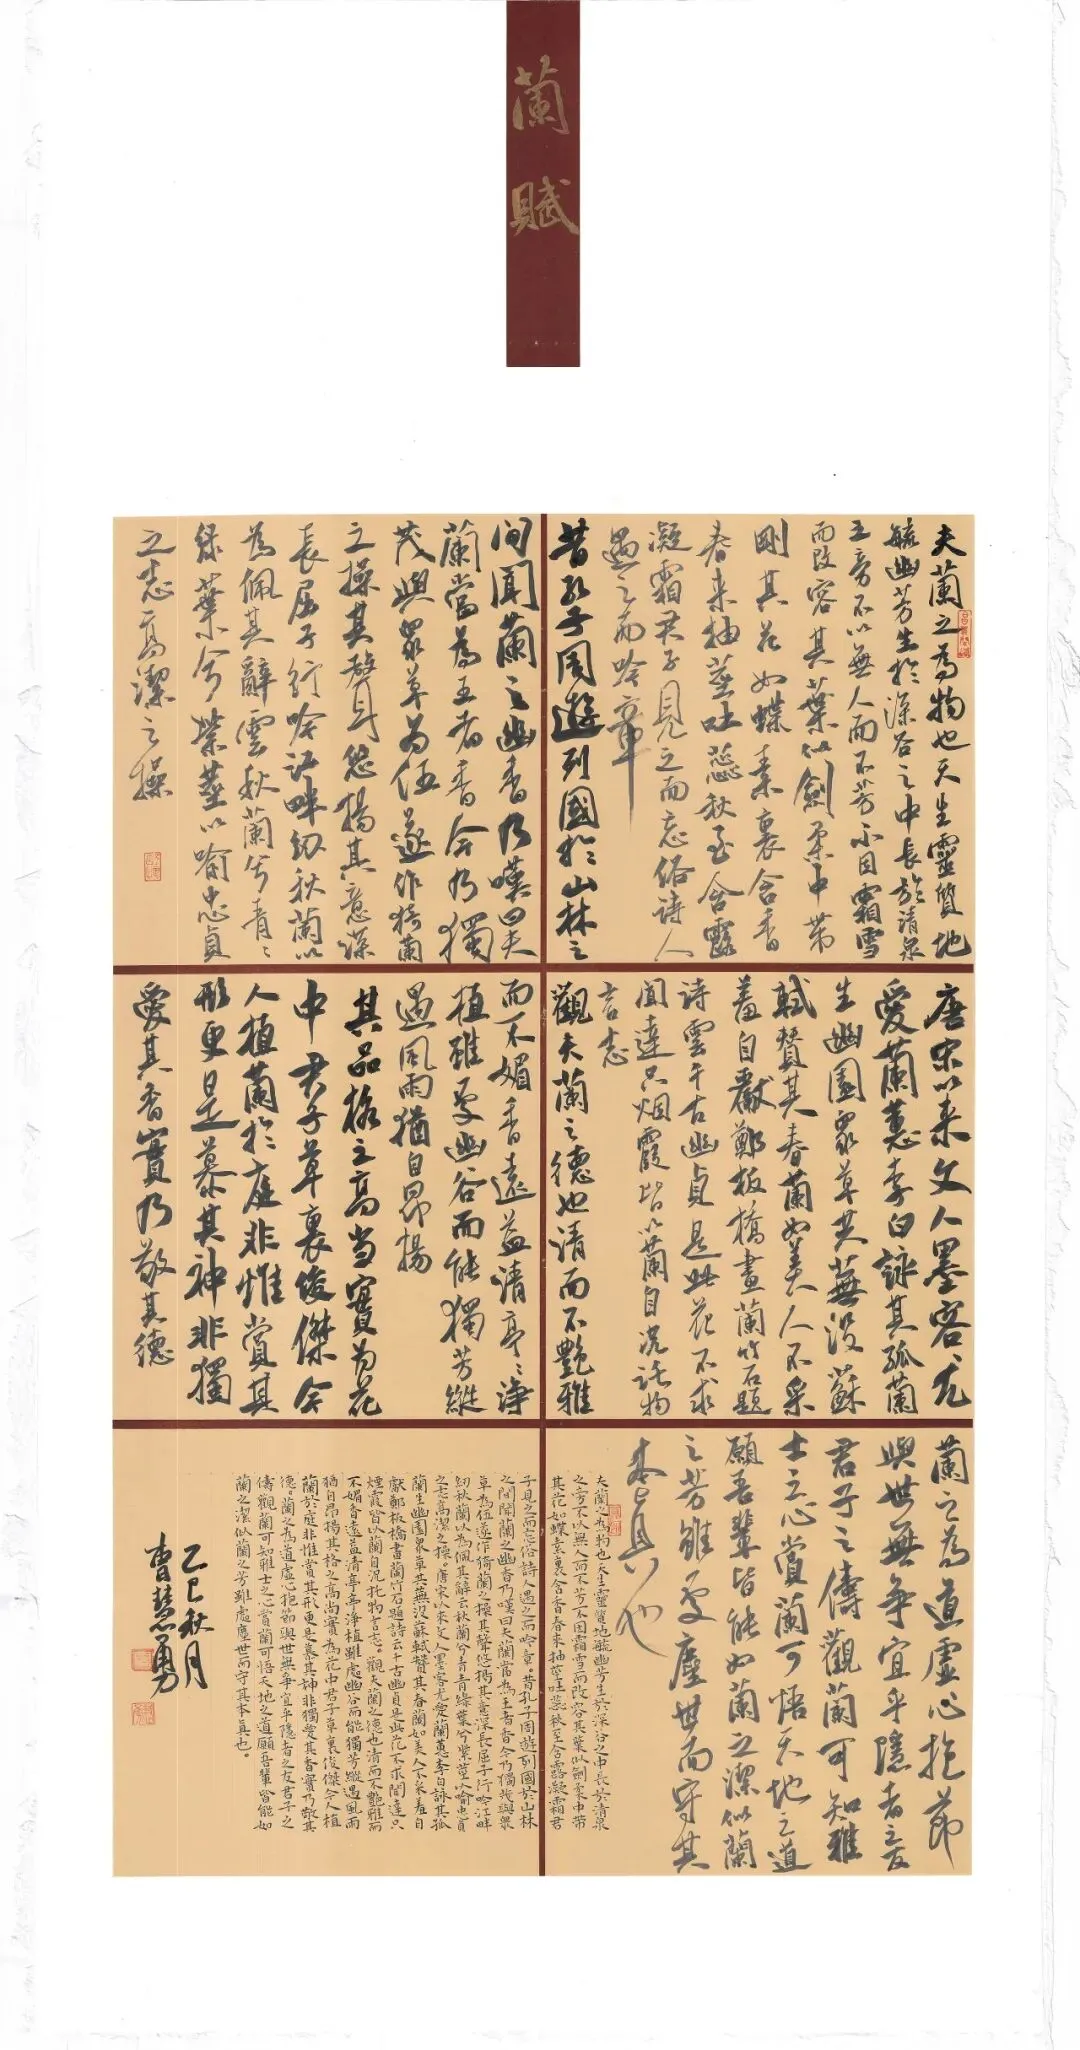 蘭賦
夫蘭之為物也天生靈質地
毓幽芳生於深谷之中長於清泉
之旁不以無人而不芳不因霜雪
而改容其葉似劍柔中帶
剛其花如蝶素裹含香
春來抽莖吐蕊秋至含露
凝霜君子見之而忘俗詩人
遇之而吟章
昔孔子周遊列國於山林之
間聞蘭之幽香乃嘆曰夫
蘭當為王者香今乃獨
茂與眾草為伍遂作猗蘭
之操其聲悠揚其意深
長屈子行吟江畔紉秋蘭以
為佩其辭雲秋蘭兮青〻
綠葉兮紫莖以喻忠貞
之志高潔之操
唐宋以來文人墨客尤
愛蘭蕙李白詠其孤蘭
生幽園眾草共蕪沒蘇
軾贊其春蘭如美人不采
羞自獻鄭板橋畫蘭竹石題
诗雲千古幽貞是此花不求
聞達只烟霞皆以蘭自況託物
言志
觀夫蘭之德也清而不艷雅
而不媚香遠益清亭〻淨
植雖處幽谷而能獨芳縱
遇風雨猶自昂揚
其品格之高尚實為花
中君子草裏俊傑今
人植蘭於庭非惟賞其
形更是慕其神非獨
愛其香實乃敬其德
蘭之為道虛心抱節
與世無爭宜乎隱者之友
君子之儔觀蘭可知雅
士之心賞蘭可悟天地之道
願吾輩皆能如蘭之潔似蘭
之芳雖處塵世而守其
本真也
夫蘭之為物也天生靈質地毓幽芳生於深谷之中長於清泉
之旁不以無人而不芳不因霜雪而改容其葉似劍柔中帶
其花如蝶素裹含香春來抽莖吐蕊秋至含露凝霜君
子見之而忘俗詩人遇之而吟章。昔孔子周遊列國於山林
之間聞蘭之幽香乃嘆曰夫蘭當為王者香今乃獨茂與眾
草為伍遂作猗蘭之操其聲悠揚其意深長屈子行吟江畔
紉秋蘭以為佩其辭云秋蘭兮青青綠葉兮紫莖以喻忠貞
之志高潔之操。唐宋以來文人墨客尤愛蘭蕙李白詠其孤
蘭生幽園眾草共蕪沒蘇軾贊其春蘭如美人不采羞自
獻鄭板橋畫蘭竹石題詩云千古幽貞是此花不求聞達只
煙霞皆以蘭自況託物言志。觀夫蘭之德也清而不艷雅而
不媚香遠益清亭亭淨植雖處幽谷而能獨芳縱遇風雨
猶自昂揚其格之高尚實為花中君子草裏俊傑今人植
蘭於庭非惟賞其形更是慕其神非獨愛其香實乃敬其
德。蘭之為道虛心抱節與世無爭宜乎隱者之友君子之
儔觀蘭可知雅士之心賞蘭可悟天地之道願吾輩皆能如
蘭之潔似蘭之芳雖處塵世而守其本真也。
乙巳秋月
曹慧勇